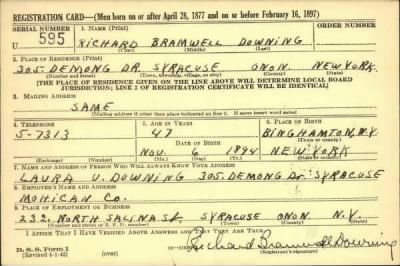 REGISTRATION CARD—(Men born on or after April 28, 1877 and on or before February 16, 1897)
SERIAL NUMBER
1. NAME (Print)
U 595
RICHARD BRAMWELL DOWNING
(First) (Middle) (Last)
2. PLACE OF RESIDENCE (Print)
305 DEMONG DR SYRACUSE ONON. NEW YORK
(Number and street) (Town, township, village, or city) (County) (State)
[THE PLACE OF RESIDENCE GIVEN ON THE LINE ABOVE WILL DETERMINE LOCAL BOARD
JURISDICTION; LINE 2 OF REGISTRATION CERTIFICATE WILL BE IDENTICAL]
3. MAILING ADDRESS
SAME
[Mailing address if other than place indicated on line 2. If same insert word same]
4. TELEPHONE
5. AGE IN YEARS
6. PLACE OF BIRTH
5-7313
47
BINGHAMTON, N.Y.
DATE OF BIRTH
(Town or county)
NOV. 6 1894
NEW YORK
(Exchange) (Number)
(Mo.) (Day) (Yr.)
(State or country)
7. NAME AND ADDRESS OF PERSON WHO WILL ALWAYS KNOW YOUR ADDRESS
LAURA V. DOWNING 305 DEMONG Dr. SYRACUSE
8. EMPLOYER'S NAME AND ADDRESS
MOHICAN Co.
9. PLACE OF EMPLOYMENT OR BUSINESS
232 NORTH SALINA St. SYRACUSE ONON N.Y.
(Number and street or R. F. D. number) (Town) (County) (State)
I AFFIRM THAT I HAVE VERIFIED ABOVE ANSWERS AND THAT THEY ARE TRUE.
D. S. S. Form 1
(Revised 4-1-42)
(over)
Richard Bramwell Downing
(Registrant's signature)